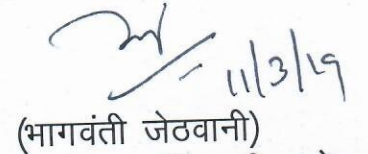 11/3/19
(भागवंती जेठवानी)